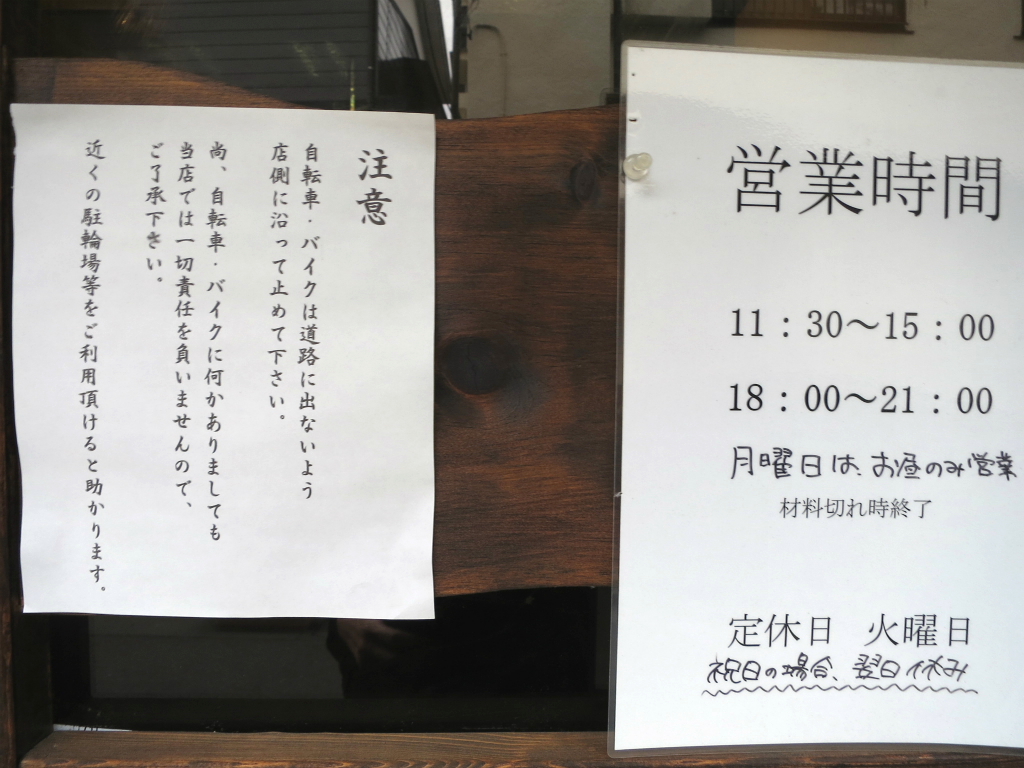 注意
自転車・バイクは道路に出ないよう
店側に沿って止めて下さい。
尚、自転車・バイクに何かありましても
当店では一切責任を負いませんので、
ご了承下さい。
近くの駐輪場等をご利用頂けると助かります。
営業時間
11：30～15：00
18：00～21：00
月曜日は、お昼のみ営業
材料切れ時終了
定休日 火曜日
祝日の場合、翌日休み